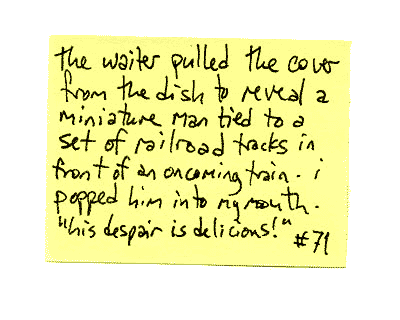 the waiter pulled the cover
from the dish to reveal a
miniature man tied to a
set of railroad tracks in
front of an oncoming train. i
popped him into my mouth.
"his despair is delicious!" #71